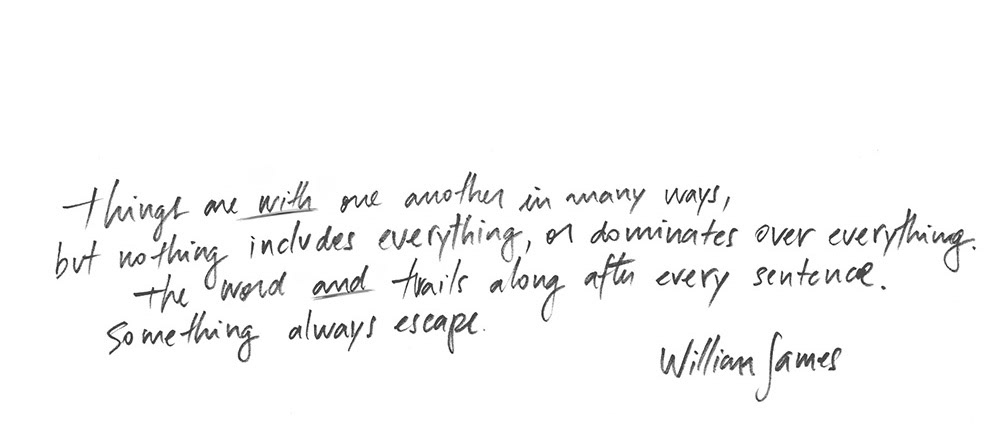 things are with one another in many ways,
but nothing includes everything, or dominates over everything.
the word and trails along after every sentence.
Something always escape.
William James